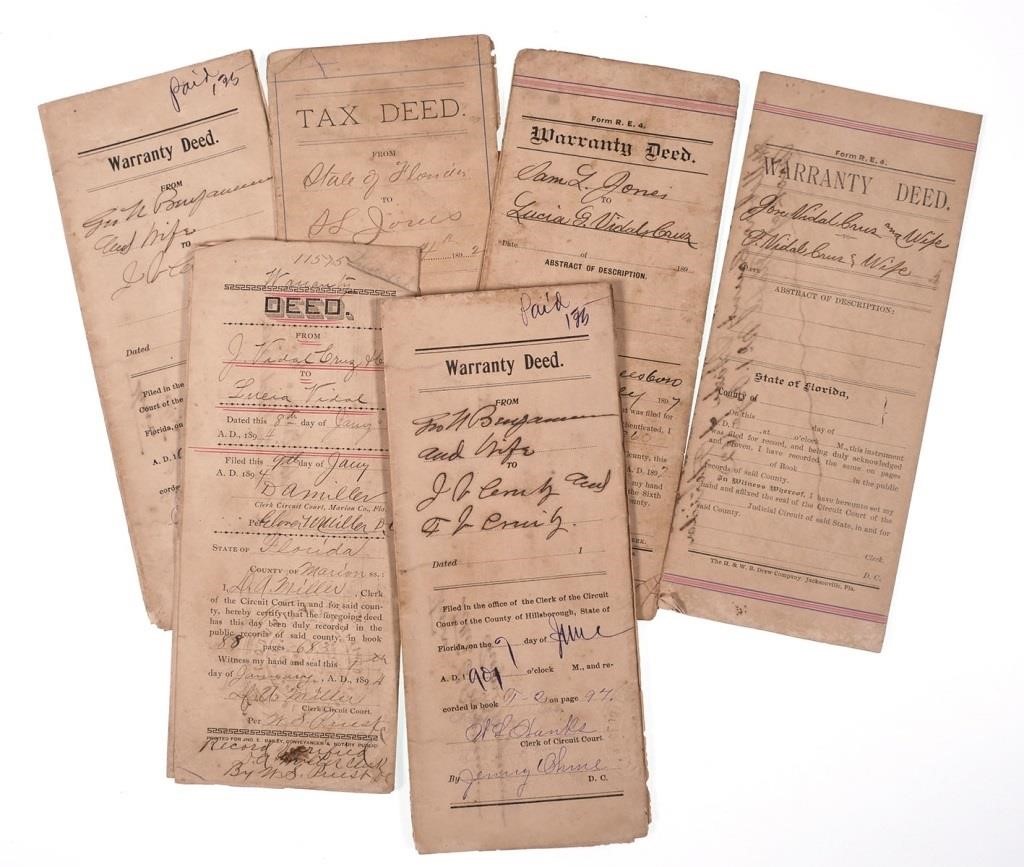 Paid
1.25
Warranty Deed.
FROM
Jno N Benjamin
and Wife
TO
J V C
Dated
Filed in the
Court of the
Florida, on
A. D. 1
corded
TAX DEED.
FROM
State of Florida
TO
S L Jones
189 2
Form R. E. 4.
Warranty Deed.
Sam L. Jones
TO
Lucia G. Vidal Cruz
Date of 189
ABSTRACT OF DESCRIPTION.
1897
was filed for
thenticated, I
County, this
A. D. 189
my hand
the Sixth
County.
Clerk.
D. C.
Form R. E. 4.
WARRANTY DEED.
Jose Vidal Cruz and Wife
F. Vidal Cruz & Wife
ABSTRACT OF DESCRIPTION:
State of Florida,
County of
On this day of
A. D. at o'clock M., this instrument
was filed for record, and being duly acknowledged
and proven, I have recorded the same on pages
of Book in the public
records of said County.
In Witness Whereof, I have hereunto set my
hand and affixed the seal of the Circuit Court of the
Judicial Circuit of said State, in and for
said County.
Clerk.
D. C.
The H. & W. B. Drew Company, Jacksonville, Fla.
11575
Warranty
DEED.
FROM
J. Vidal Cruz &
TO
Lucia Vidal
Dated this 8th day of Jany
A. D., 189 4
Filed this 9th day of Jany
A. D. 189 4
D A Miller
Clerk Circuit Court, Marion Co., Fla.
Per Miller D
STATE OF Florida
COUNTY OF Marion ss:
I, D. A. Miller, Clerk
of the Circuit Court in and for said coun-
ty, hereby certify that the foregoing deed
has this day been duly recorded in the
public records of said county, in book
88 pages 683
Witness my hand and seal this
day of January, A. D., 189 4
D. A. Miller
Clerk Circuit Court.
Per W. S. Priest
PRINTED FOR JNO. E. BAILEY, CONVEYANCER & NOTARY PUBLIC
Record verified
D. A. Miller Clerk
By W. S. Priest
Paid
1.25
Warranty Deed.
FROM
Jno N Benjamin
and Wife
TO
J V Cruz and
F V Cruz.
Dated 1
Filed in the office of the Clerk of the Circuit
Court of the County of Hillsborough, State of
Florida, on the 7 day of June
A. D. 1901 o'clock M., and re-
corded in book T-2 on page 97
Clerk of Circuit Court.
By Jenny
D. C.